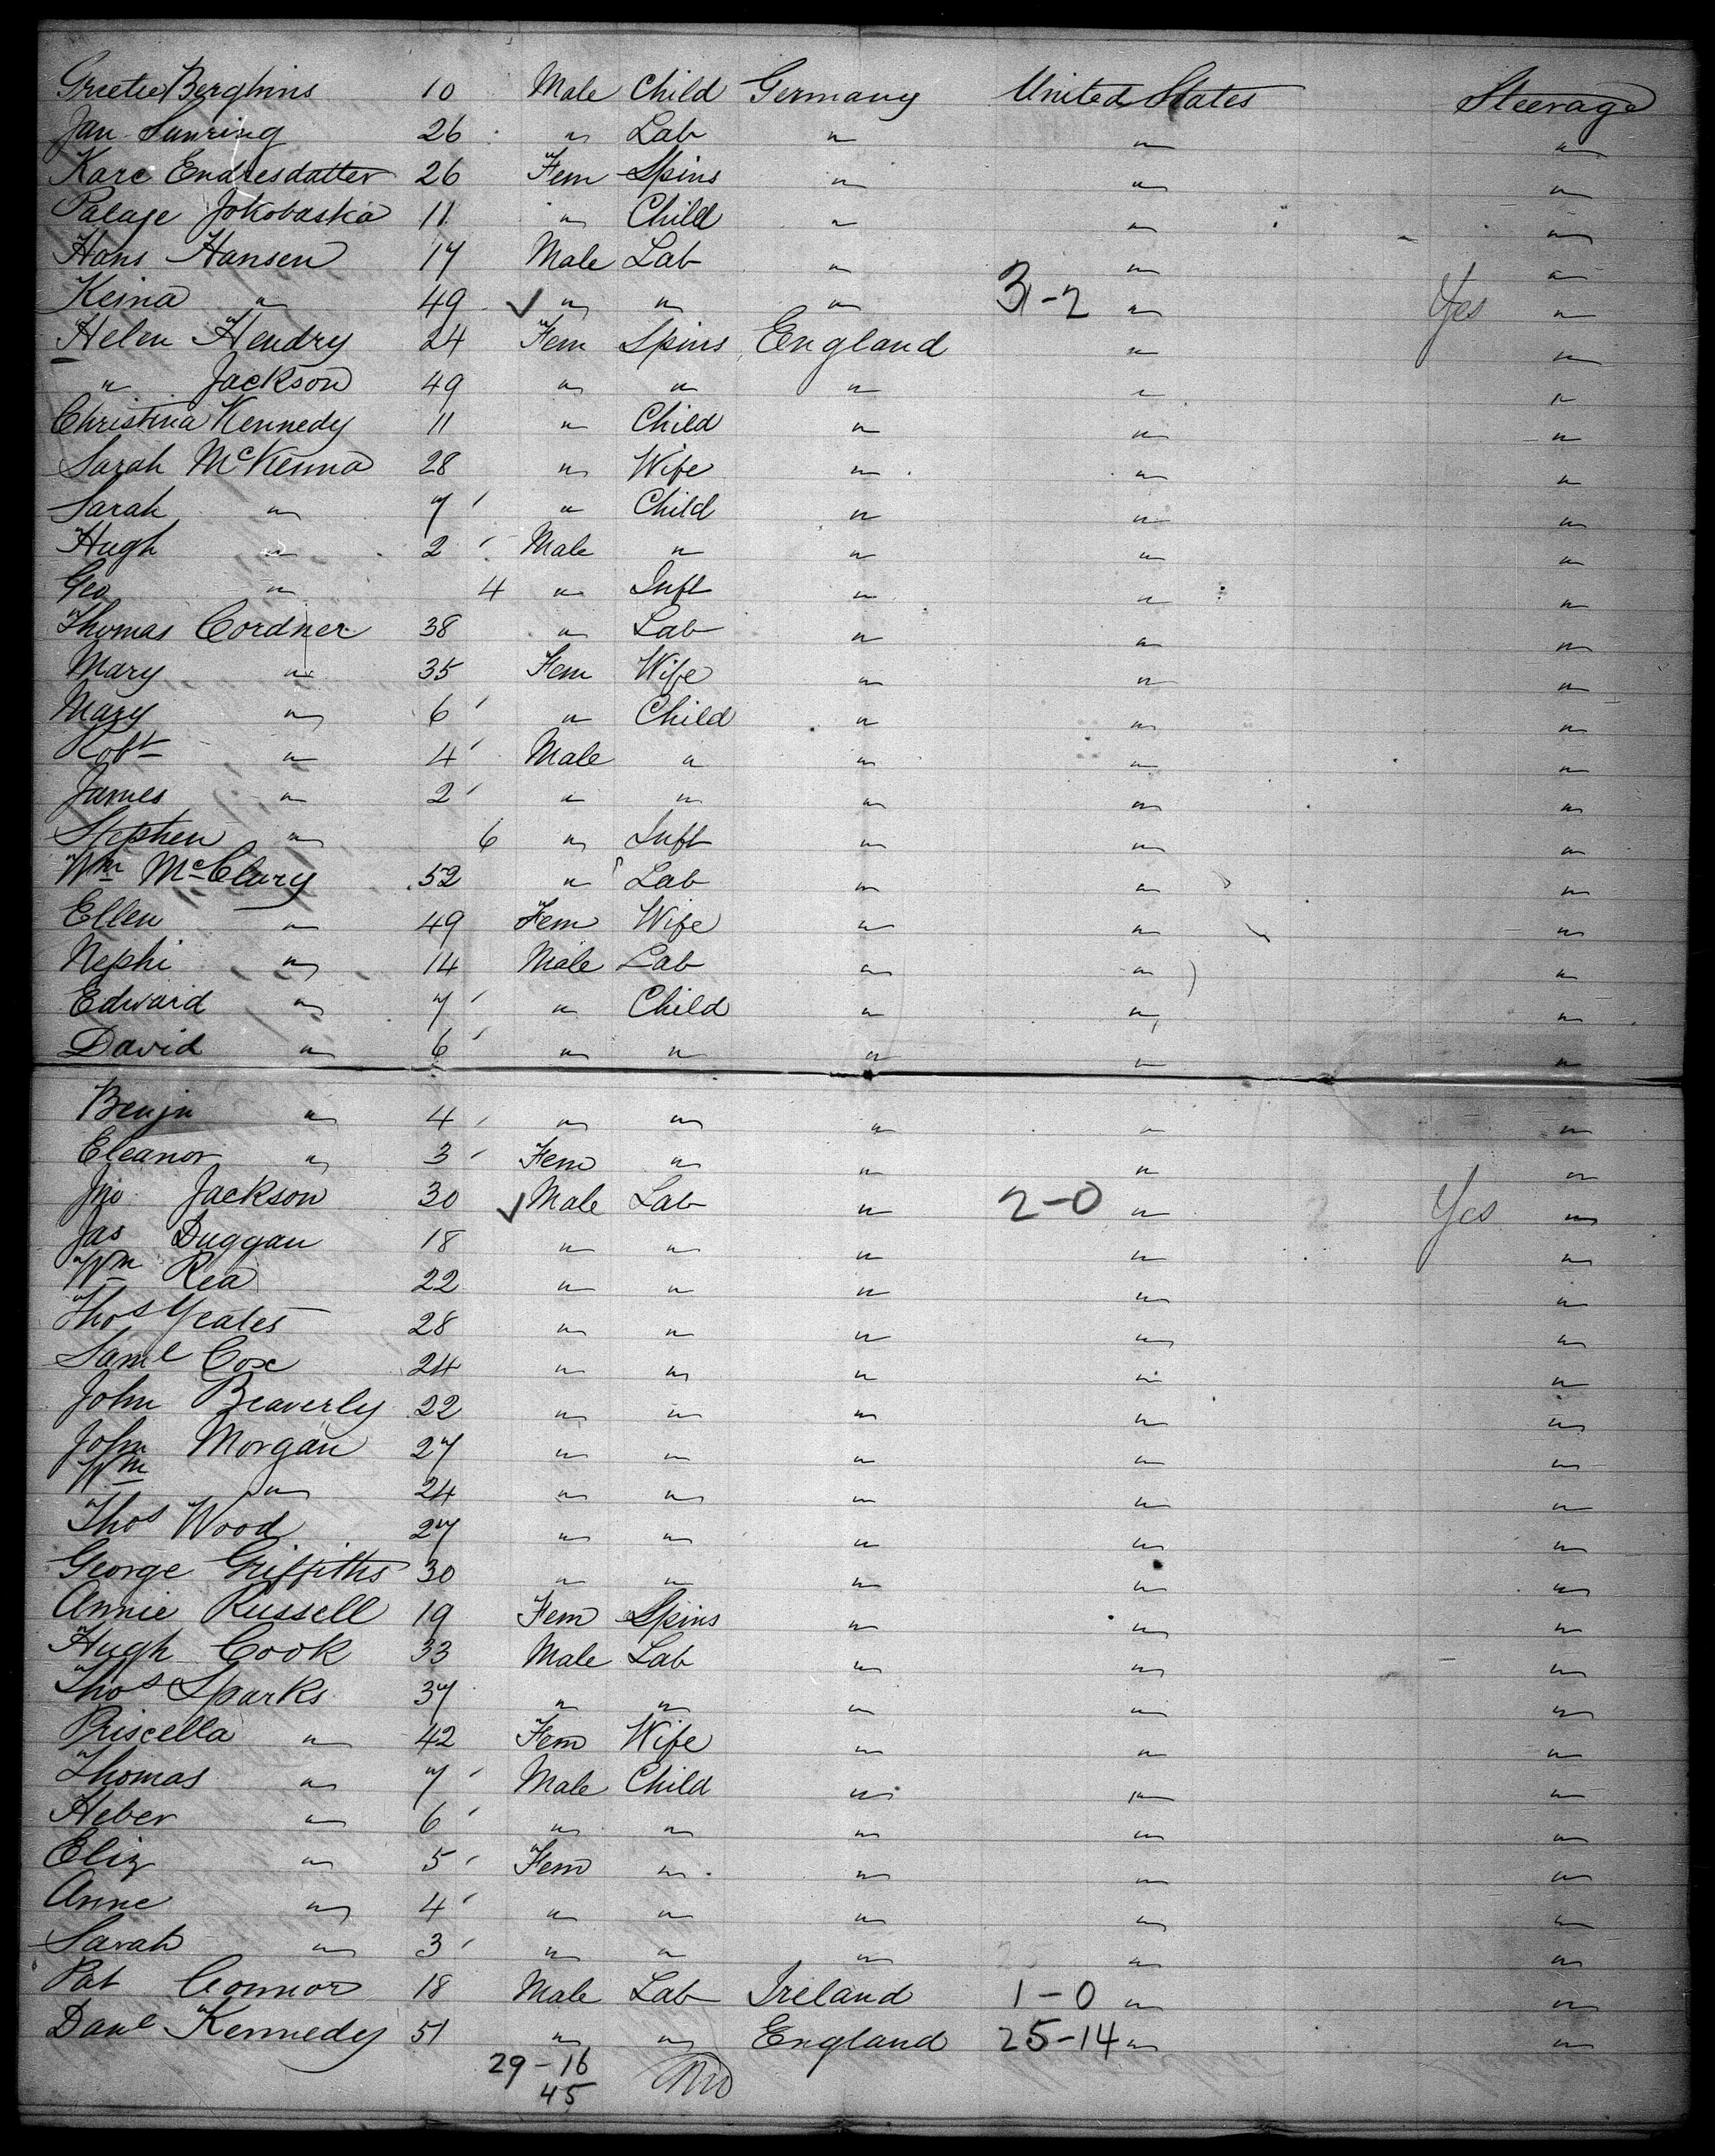 Greetie Berghins 10 Male Child Germany United States Steerage
Jan Sunring 26 " Lab " " "
Kare Endresdatter 26 Fem Spins " " "
Palaje Jokobaska 11 " Child " " "
Hans Hansen 17 Male Lab " " "
Keina " 49 ✓ " " " 3-2 " Yes "
Helen Hendry 24 Fem Spins England " "
" Jackson 49 " " " " "
Christina Kennedy 11 " Child " " "
Sarah McKenna 28 " Wife " " "
Sarah " 7 ' " Child " " "
Hugh " 2 ' Male " " " "
Geo " 4 " Inft " " "
Thomas Cordner 38 " Lab " " "
Mary " 35 Fem Wife " " "
Mary " 6 ' " Child " " "
Robt " 4 ' Male " " " "
James " 2 ' " " " " "
Stephen " 6 " Inft " " "
Wm McClury 52 " Lab " " "
Ellen " 49 Fem Wife " " "
Nephi " 14 Male Lab " " "
Edward " 7 ' " Child " " "
David " 6 ' " " " " "
Benjn " 4 ' " " " " "
Eleanor " 3 ' Fem " " " "
Jno Jackson 30 ✓ Male Lab " 2-0 " Yes "
Jas Duggan 18 " " " " "
Wm Rea 22 " " " " "
Thos Yeates 28 " " " " "
Saml Cox 24 " " " " "
John Beaverly 22 " " " " "
John Morgan 27 " " " " "
Wm " 24 " " " " "
Thos Wood 27 " " " " "
George Griffiths 30 " " " " "
Annie Russell 19 Fem Spins " " "
Hugh Cook 33 Male Lab " " "
Thos Sparks 37 " " " " "
Priscella " 42 Fem Wife " " "
Thomas " 7 ' Male Child " " "
Heber " 6 ' " " " " "
Eliz " 5 ' Fem " " " "
Anne " 4 ' " " " " "
Sarah " 3 ' " " " " "
Pat Connor 18 Male Lab Ireland 1-0 " "
Danl Kennedy 51 " " England 25-14 " "
29-16
45